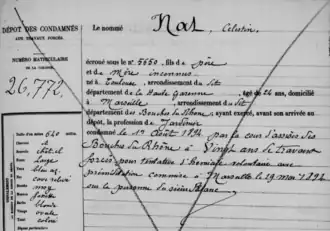 DÉPÔT DES CONDAMNÉS
AUX TRAVAUX FORCÉS.
NUMÉRO MATRICULAIRE
26,772
Le nommé Nas, Célestin
écroué sous le nº 5650, fils de père
et de Mère inconnus
né à Toulouse, arrondissement dudit
département de la Haute Garonne, âgé de 24 ans, domicilié
à Marseille, arrondissement dudit
département des Bouches du Rhône, exerçant, avant son arrivée au
dépôt, la profession de
condamné le 1er Août 1894 par la cour d'assises des
Bouches du Rhône à Vingt ans de travaux
forcés pour tentative d'homicide volontaire avec
préméditation commise à Marseille le 19 mai 1894
sur la personne du sieur
Taille d'un mètre 640 milli.
Cheveux
Front
Yeux
Nez
Bouche moy
Menton
Barbe blonde
Visage ovale
Teint coloré
Signes particuliers